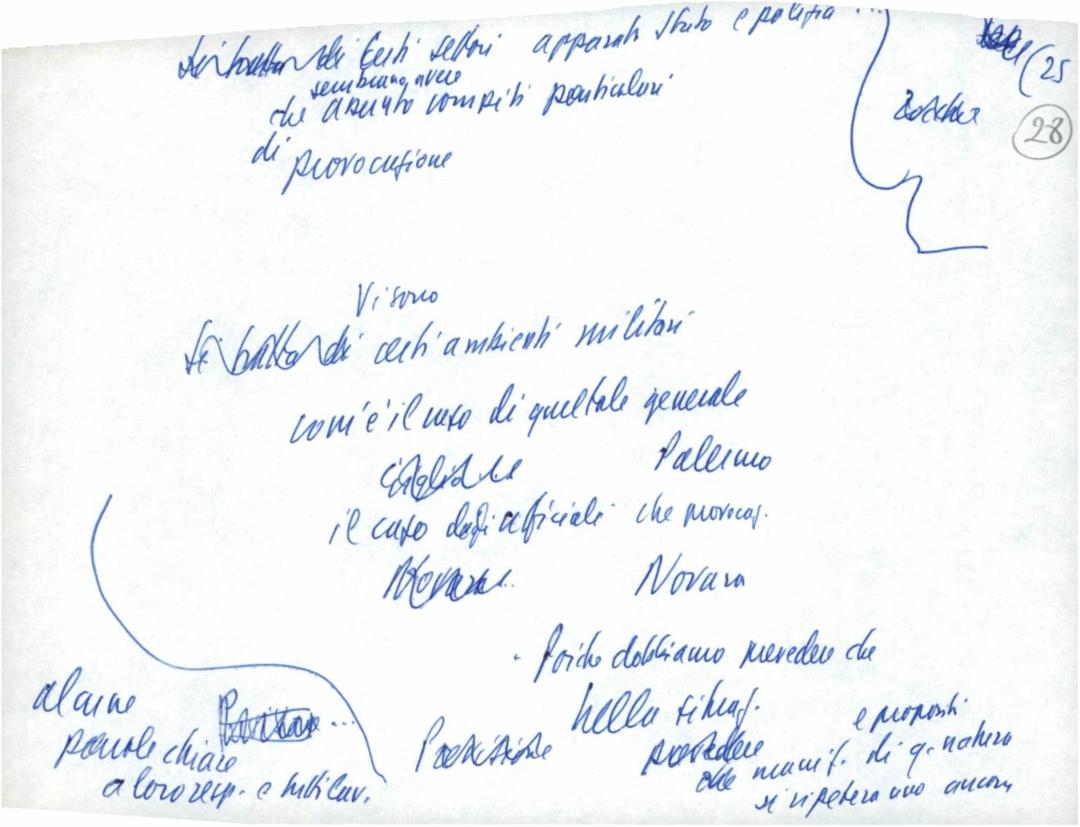 Si tratta di certi settori apparati Stato e polizia ...
sembrano avere
che assunto compiti particolari
di
provocazione
(25
28
Vi sono
Si tratta di certi ambienti militari
com'è il caso di quel tale generale
Palermo
il caso degli ufficiali che provocaz.
Novara
Novara
. Poiché dobbiamo prevedere che
nella situaz.
prevedere
e propositi
che manif. di q. natura
si ripeteranno ancora
alcune
parole chiare
a loro resp. e militar.